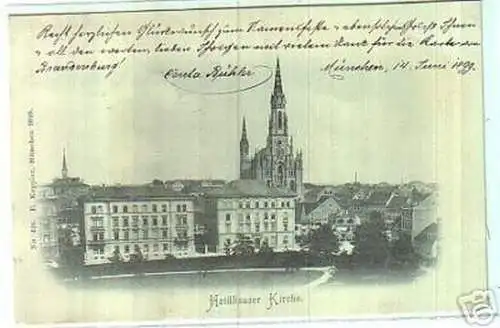 Recht herzlichen Glückwunsch zum Namensfeste & ebenso schickt Ihnen
& all den werten, lieben Ihrigen mit vielem Dank für die Karte aus
Brandenburg!
München, 14. Juni 1899.
No. 418. H. Keppler, München 1898.
Haidhauser Kirche.